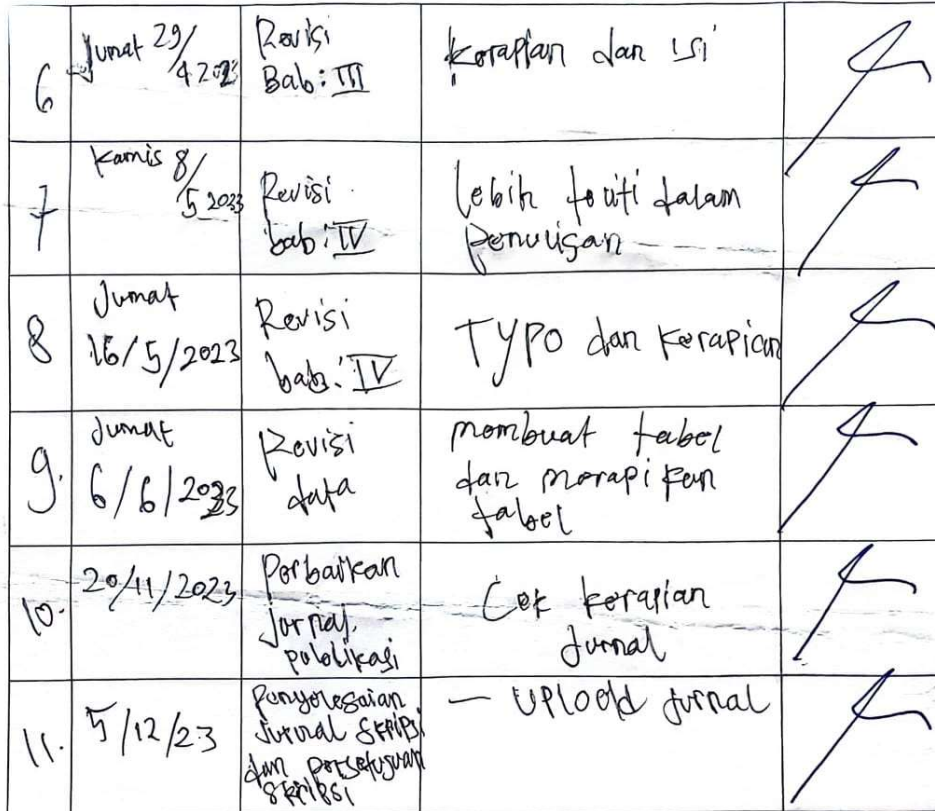 6
Jumat 29/
4 2023
Revisi
Bab: III
Kerapian dan isi
7
Kamis 8/
5 2023
Revisi
bab: IV
lebih teliti dalam
Penulisan
8
Jumat
16/5/2023
Revisi
bab: IV
TYPO dan Kerapian
9.
Jumat
6/6/2023
Revisi
data
membuat tabel
dan merapikan
tabel
10.
20/11/2023
Perbaikan
Jurnal
publikasi
Cek kerapian
Jurnal
11.
5/12/23
Penyelesaian
Jurnal Skripsi
dan persetujuan
Skripsi
— Upload Jurnal